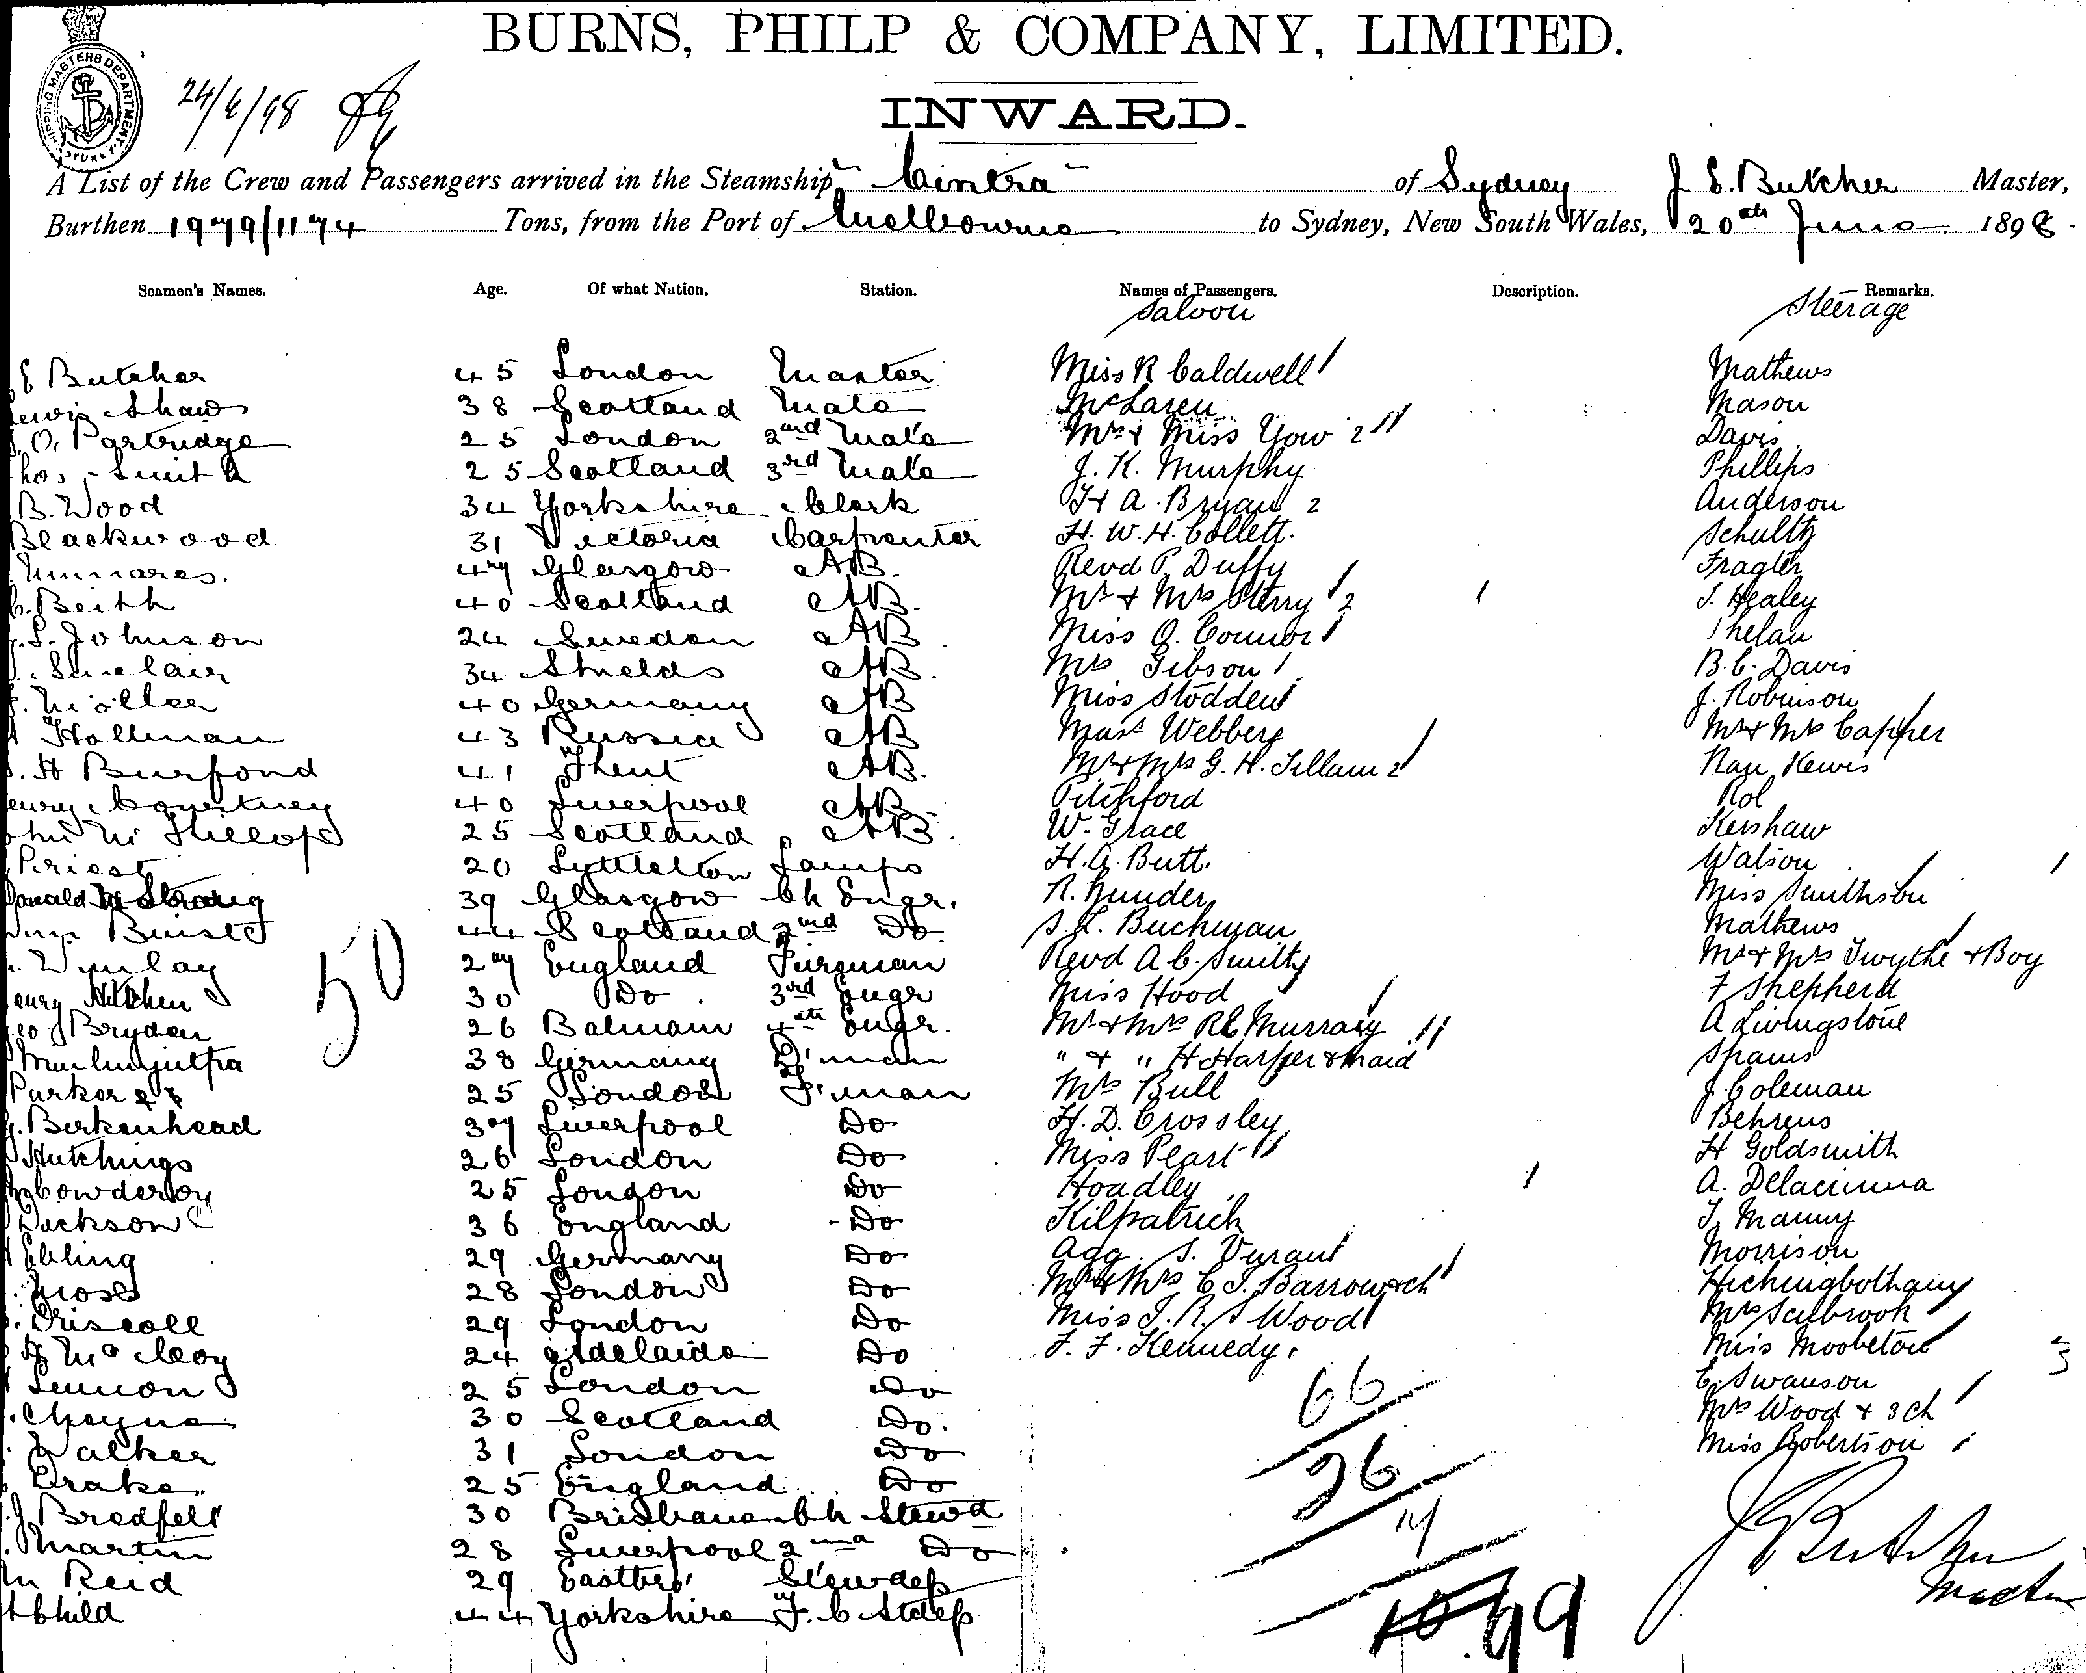 BURNS, PHILP & COMPANY, LIMITED.
SHIPPING MASTERS DEPARTMENT SYDNEY
24/6/98
INWARD.
A List of the Crew and Passengers arrived in the Steamship Cintra of Sydney J E. Butcher Master,
Burthen 1979/1174 Tons, from the Port of Melbourne to Sydney, New South Wales, 20th June 1898.
Seamen's Names. Age. Of what Nation. Station. Names of Passengers. Description. Remarks.
Saloon Steerage
E Butcher 45 London Master Miss R Caldwell Mathews
Lewis Shaw 38 Scotland Mate McLaren Mason
O. Partridge 25 London 2nd Mate Mrs & Miss Yow 2 Davis
Thos Smith 25 Scotland 3rd Mate J. K. Murphy Phillips
B. Wood 34 Yorkshire Clerk H A. Bryan 2 Anderson
Blackwood 31 Victoria Carpenter H. W. H. Collett. Schultz
47 Glasgow AB. Revd P. Duffy
C. Beith 40 Scotland AB. Mr & Mrs Sterry 2 T. Healey
S. Johnson 24 Sweden AB Miss O. Connor Phelan
Sinclair 34 Shields AB Mrs Gibson B. C. Davis
Möller 40 Germany AB Miss Stodden J. Robinson
Hollman 43 Russia AB Mast Webberg Mr & Mrs Capper
H Burfond 41 AB. Mr & Mrs G. H. Tillam 2
Henry Courtney 40 Liverpool AB Pitchford Rol
John Mc Killop 25 Scotland AB. W. Grace Kershaw
Priest 20 Lyttleton Lamps H. A. Butt. Watson
Donald 39 Glasgow Ch Engr. R. Gunder Miss Smithson
Buist 44 Scotland 2nd Do S. L. Buchman Mathews
27 England Fireman Revd A C. Smith Mr & Mrs Twythe & Boy
Henry Hitchen 30 Do 3rd Engr Miss Hood F Shepherd
50
Geo Bryden 26 Balmain 4th Engr. Mr & Mrs R C Murray A Livingstone
38 Germany F'man " & " H Harper & maid
Parker 25 London F'man Mrs Bull J. Coleman
Birkenhead 37 Liverpool Do H. D. Crossley Behrens
Hutchings 26 London Do Miss Peart H Goldsmith
Cowderoy 25 London Do Hoadley A.
Jackson 36 England Do Kilpatrick
Ebling 29 Germany Do Agg. S. Durant Morrison
Moses 28 London Do Mr & Mrs C J. Barrow & ch Hichingbotham
Driscoll 29 London Do Miss J. R. S Wood Mrs
Mc Coy 24 Adelaide Do F. F. Kennedy. Miss
Lennon 25 London Do C. Swanson
Cheyne 30 Scotland Do. 66 Mrs Wood & 3 ch
Walker 31 London Do Miss Robertson
Drake 25 England Do 26
Bredfelt 30 Brisbane Ch Stewd
Martin 28 Liverpool 2nd Do
Reid 29 Stewdess J Butcher
Child 44 Yorkshire F. C Stdess Master
99